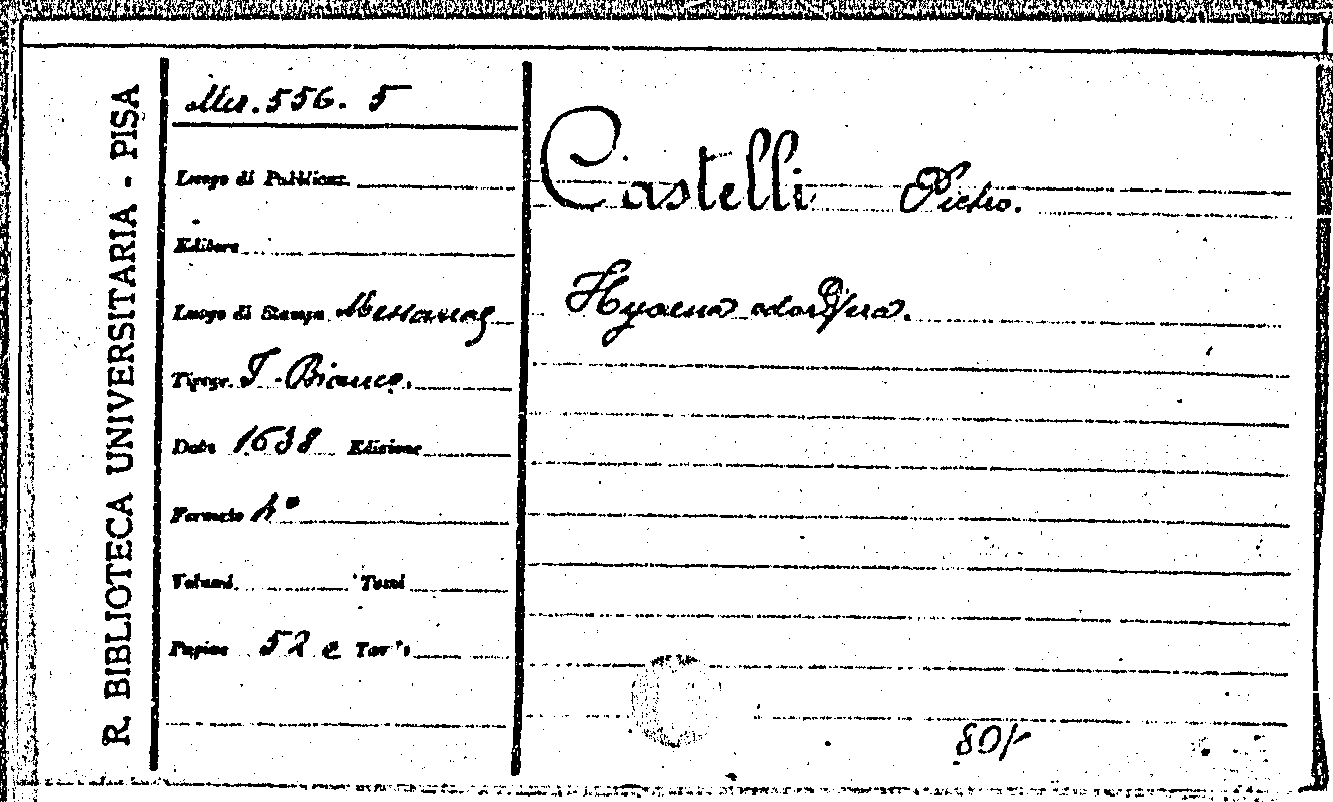 R. BIBLIOTECA UNIVERSITARIA - PISA
Mis. 556. 5
Luogo di Pubblicaz.
Editore
Luogo di Stampa Messanae
Tipogr. J. Bianco.
Data 1638 Edizione
Formato 4°
Volumi Tomi
Pagine 52 e Tav.
Castelli Pietro.
Hyaena odorifera.